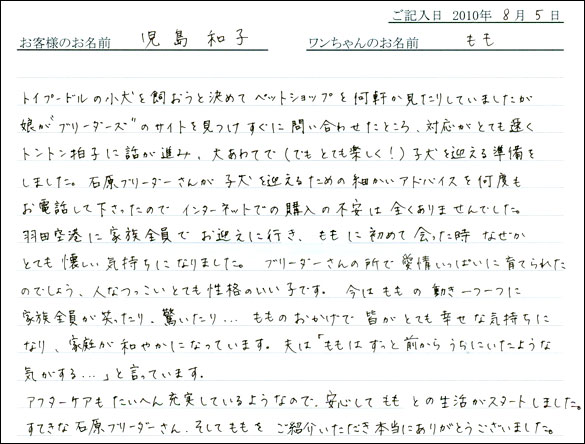 ご記入日 2010年 8月 5日
お客様のお名前 児島 和子 ワンちゃんのお名前 もも
トイプードルの小犬を飼おうと決めて ペットショップを何軒か見たりしていましたが
娘が"ブリーダーズ"のサイトを見つけ すぐに問い合わせたところ、対応がとても速く
トントン拍子に話が進み、大あわてで(でもとても楽しく!)子犬を迎える準備を
しました。石原ブリーダーさんが 子犬を迎えるための細かいアドバイスを何度も
お電話して下さったので インターネットでの購入の不安は全くありませんでした。
羽田空港に家族全員で お迎えに行き、ももに初めて会った時 なぜか
とても懐しい気持ちになりました。 ブリーダーさんの所で愛情いっぱいに育てられた
のでしょう、人なつっこいとても性格のいい子です。 今はももの動き一つ一つに
家族全員が笑ったり、驚いたり… もものおかげで皆がとても幸せな気持ちに
なり、家庭が和やかになっています。夫は「ももはずっと前からうちにいたような
気がする…」と言っています。
アフターケアもたいへん充実しているようなので、安心してももとの生活がスタートしました。
すてきな石原ブリーダーさん、そしてももをご紹介いただき本当にありがとうございました。